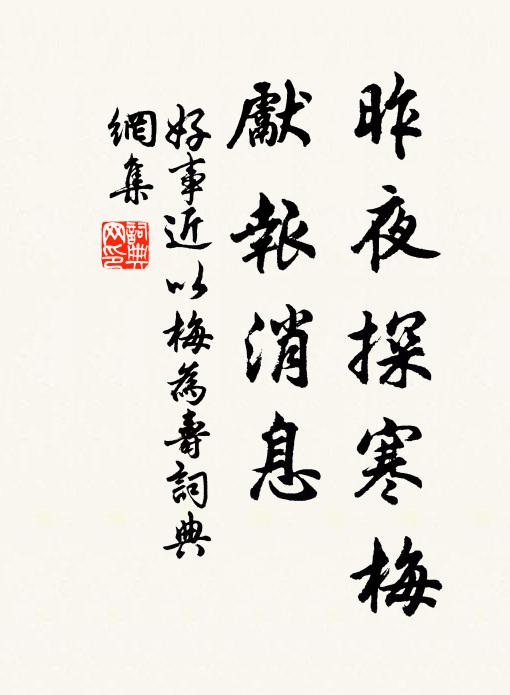 昨夜探寒梅
獻報消息
好事近以梅為壽詞典
網集
詞典
网印